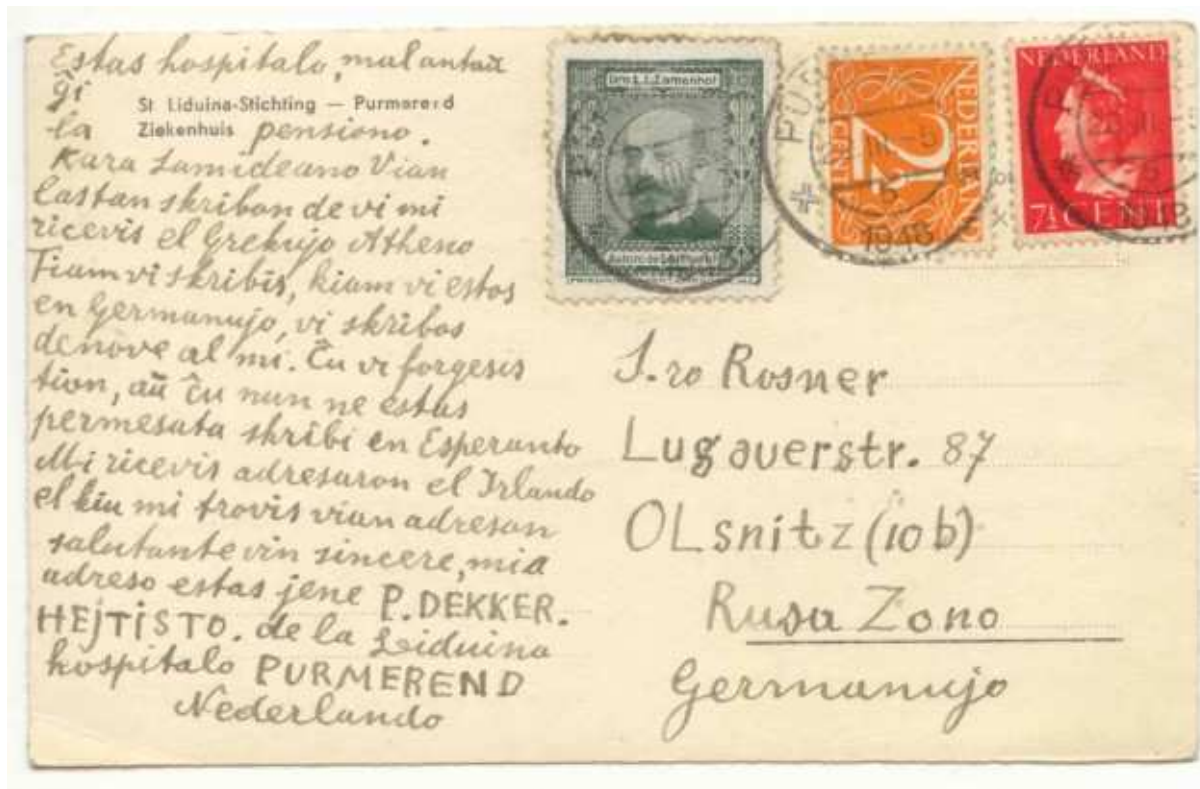 Estas hospitalo, malantaŭ
ĝi
St Liduina-Stichting — Purmerend
la
Ziekenhuis pensiono.
Kara Samideano Vian
lastan skribon de vi mi
ricevis el Grekujo Atheno
Tiam vi skribis, kiam vi estos
en Germanujo, vi skribos
denove al mi. Ĉu vi forgesis
tion, aŭ ĉu nun ne estas
permesata skribi en Esperanto
Mi ricevis adresaron el Irlando
el kiu mi trovis vian adreson
salutante vin sincere, mia
adreso estas jene P. DEKKER.
HEJTiSTO. de la Liduina
hospitalo PURMEREND
Nederlando
Dro L.L. Zamenhof
NEDERLAND
2½
CENT
1948
NEDERLAND
7½ CENT
1948
S.ro Rosner
Lugauerstr. 87
OLsnitz (10b)
Rusa Zono
Germanujo